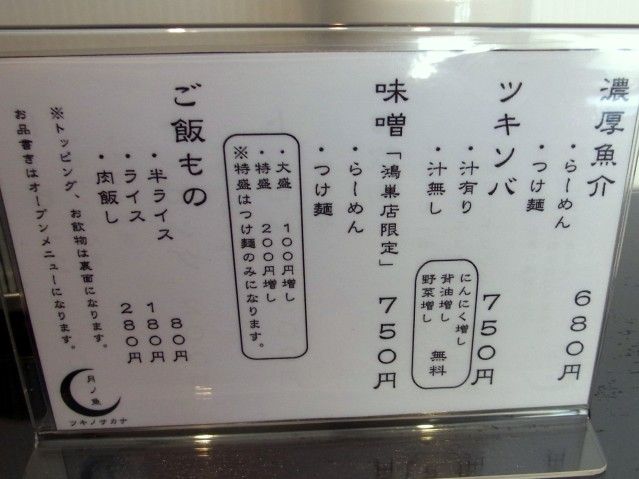 濃厚魚介
・らーめん
・つけ麺
680円
ツキソバ
・汁有り
・汁無し
750円
にんにく増し
背油増し
野菜増し
無料
味噌「鴻巣店限定」
750円
・らーめん
・つけ麺
・大盛 100円増し
・特盛 200円増し
※特盛はつけ麺のみになります。
ご飯もの
・半ライス 80円
・ライス 180円
・肉飯し 280円
※トッピング、お飲物は裏面になります。
お品書きはオープンメニューになります。
月ノ魚
ツキノサカナ